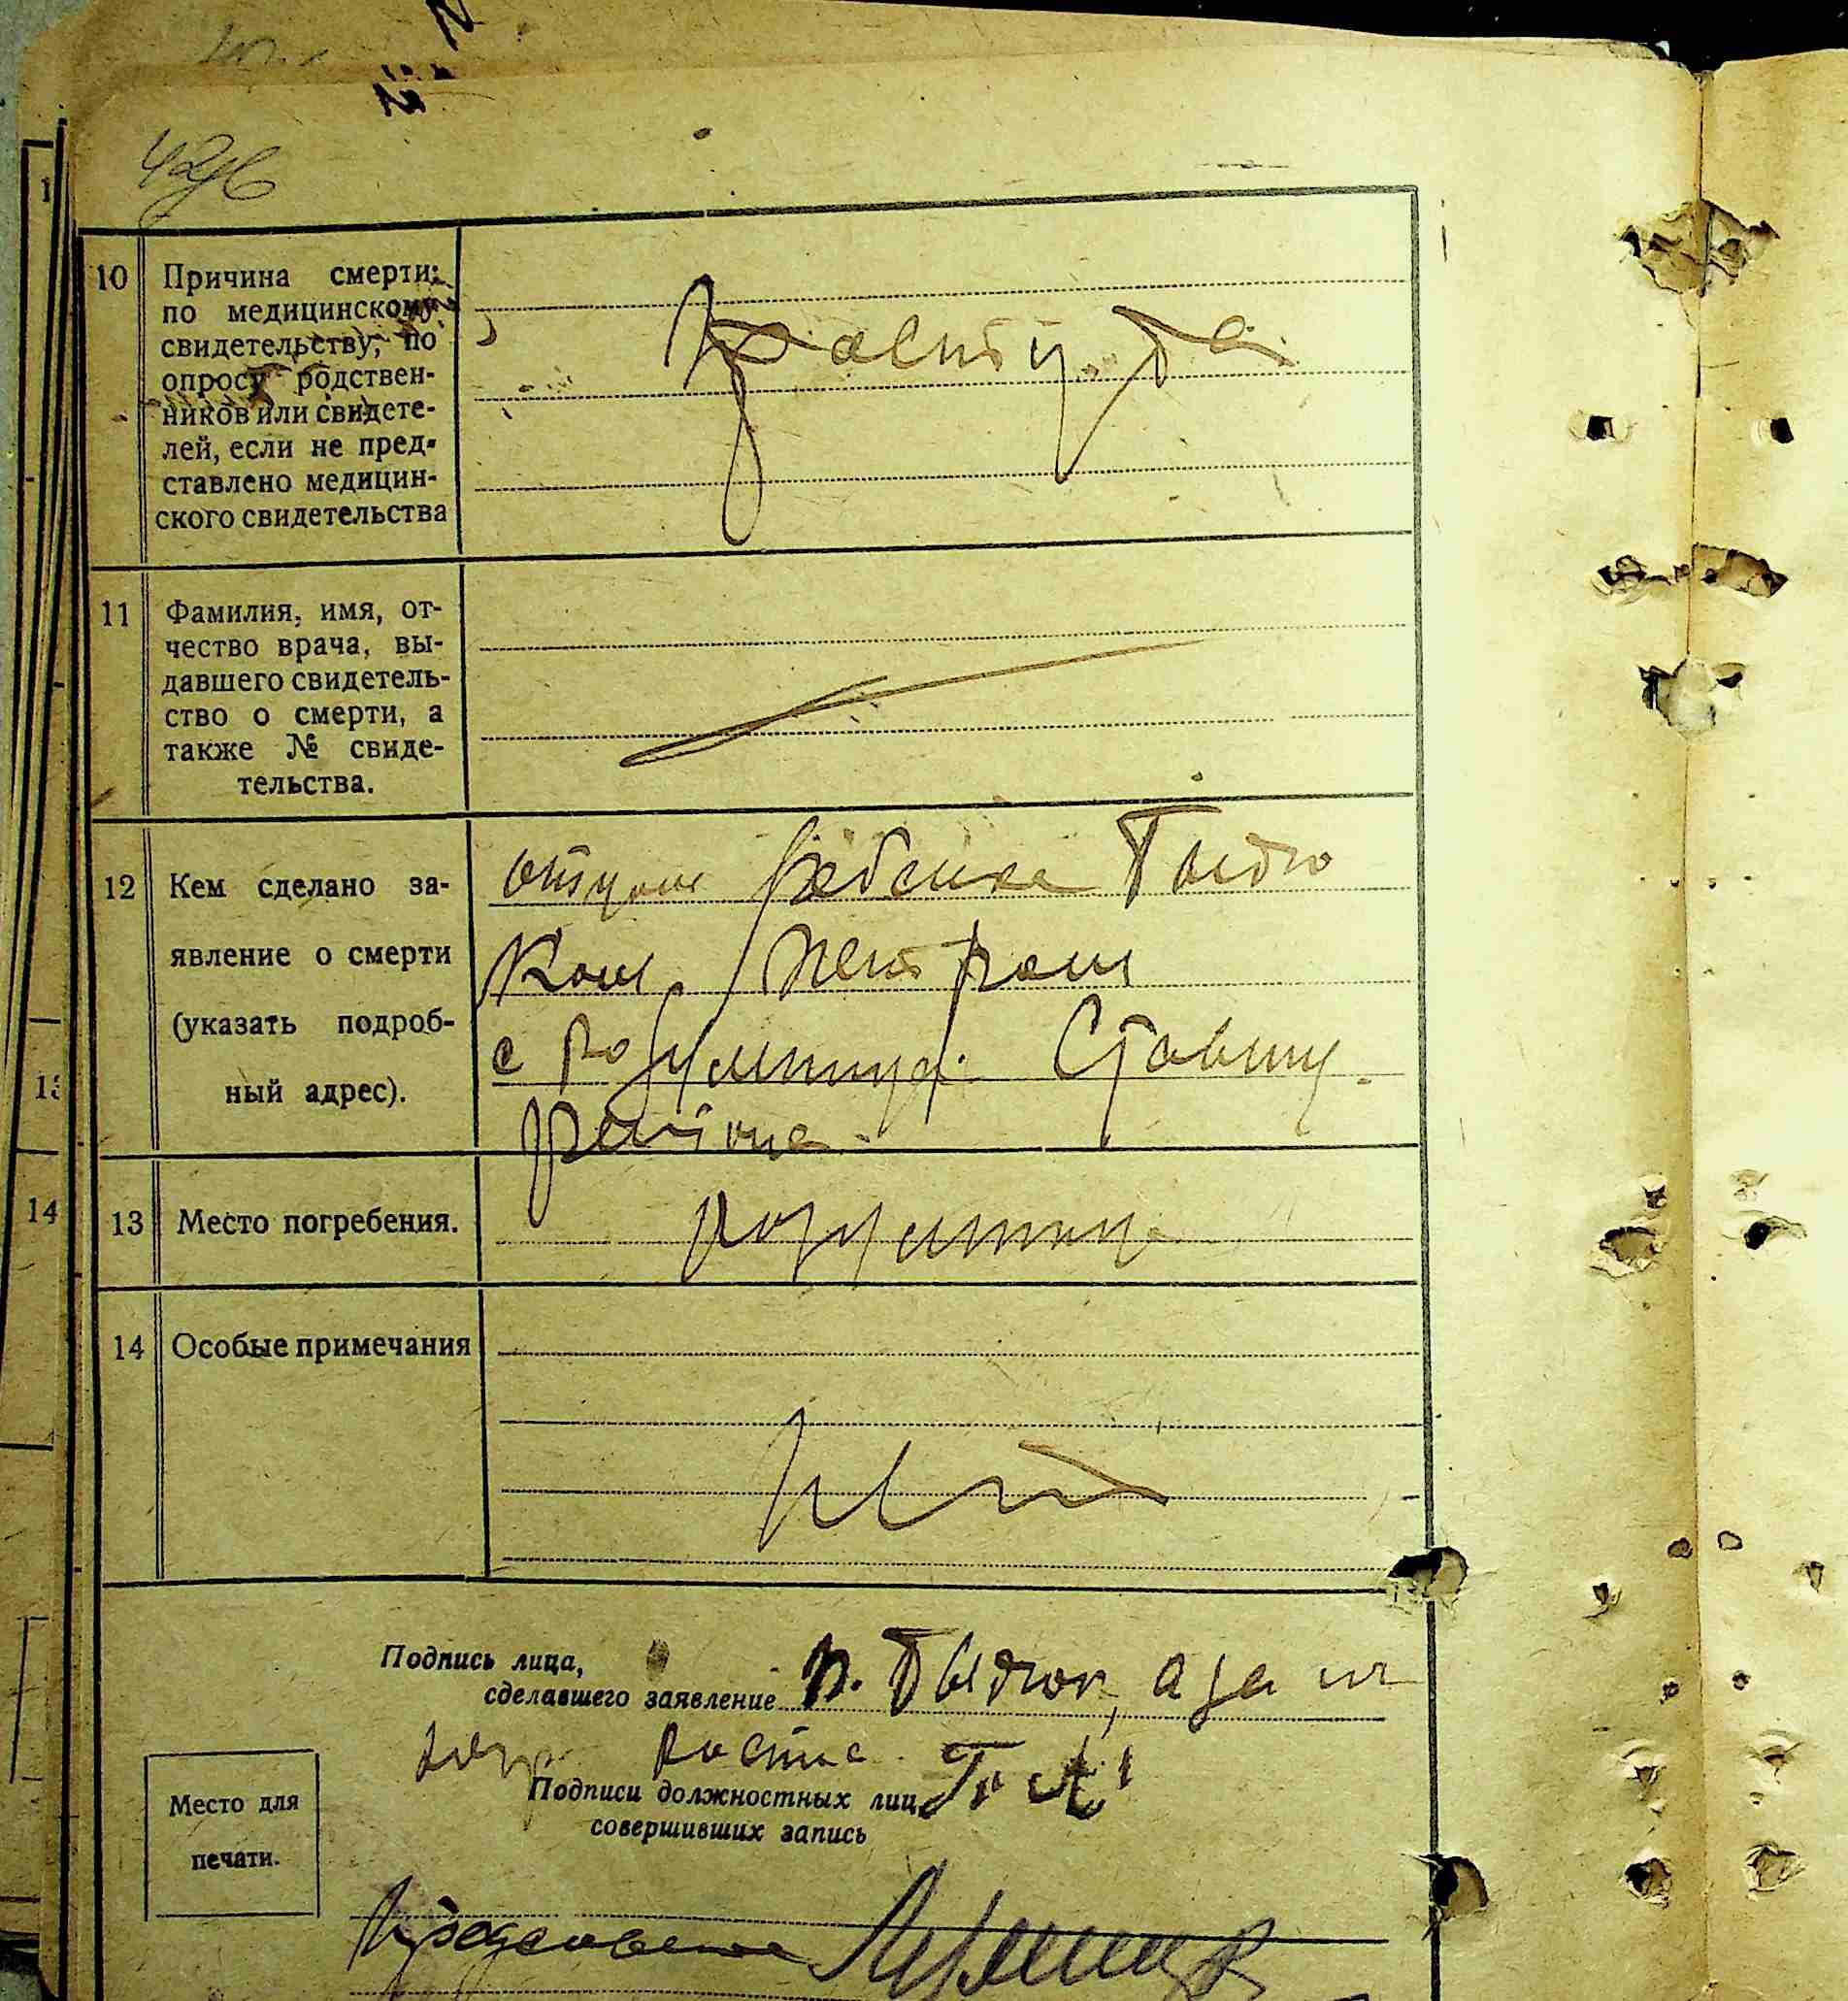 10
Причина смерти:
по медицинскому
свидетельству, по
опросу родствен-
ников или свидете-
лей, если не пред-
ставлено медицин-
ского свидетельства
простуда
11
Фамилия, имя, от-
чество врача, вы-
давшего свидетель-
ство о смерти, а
также № свиде-
тельства.
12
Кем сделано за-
явление о смерти
(указать подроб-
ный адрес).
отцом ребенка
Петром
с Розумница Ставищ.
района
13
Место погребения.
Розумница
14
Особые примечания
Нет
Подпись лица,
сделавшего заявление
Подписи должностных лиц,
совершивших запись
Место для
печати.
14